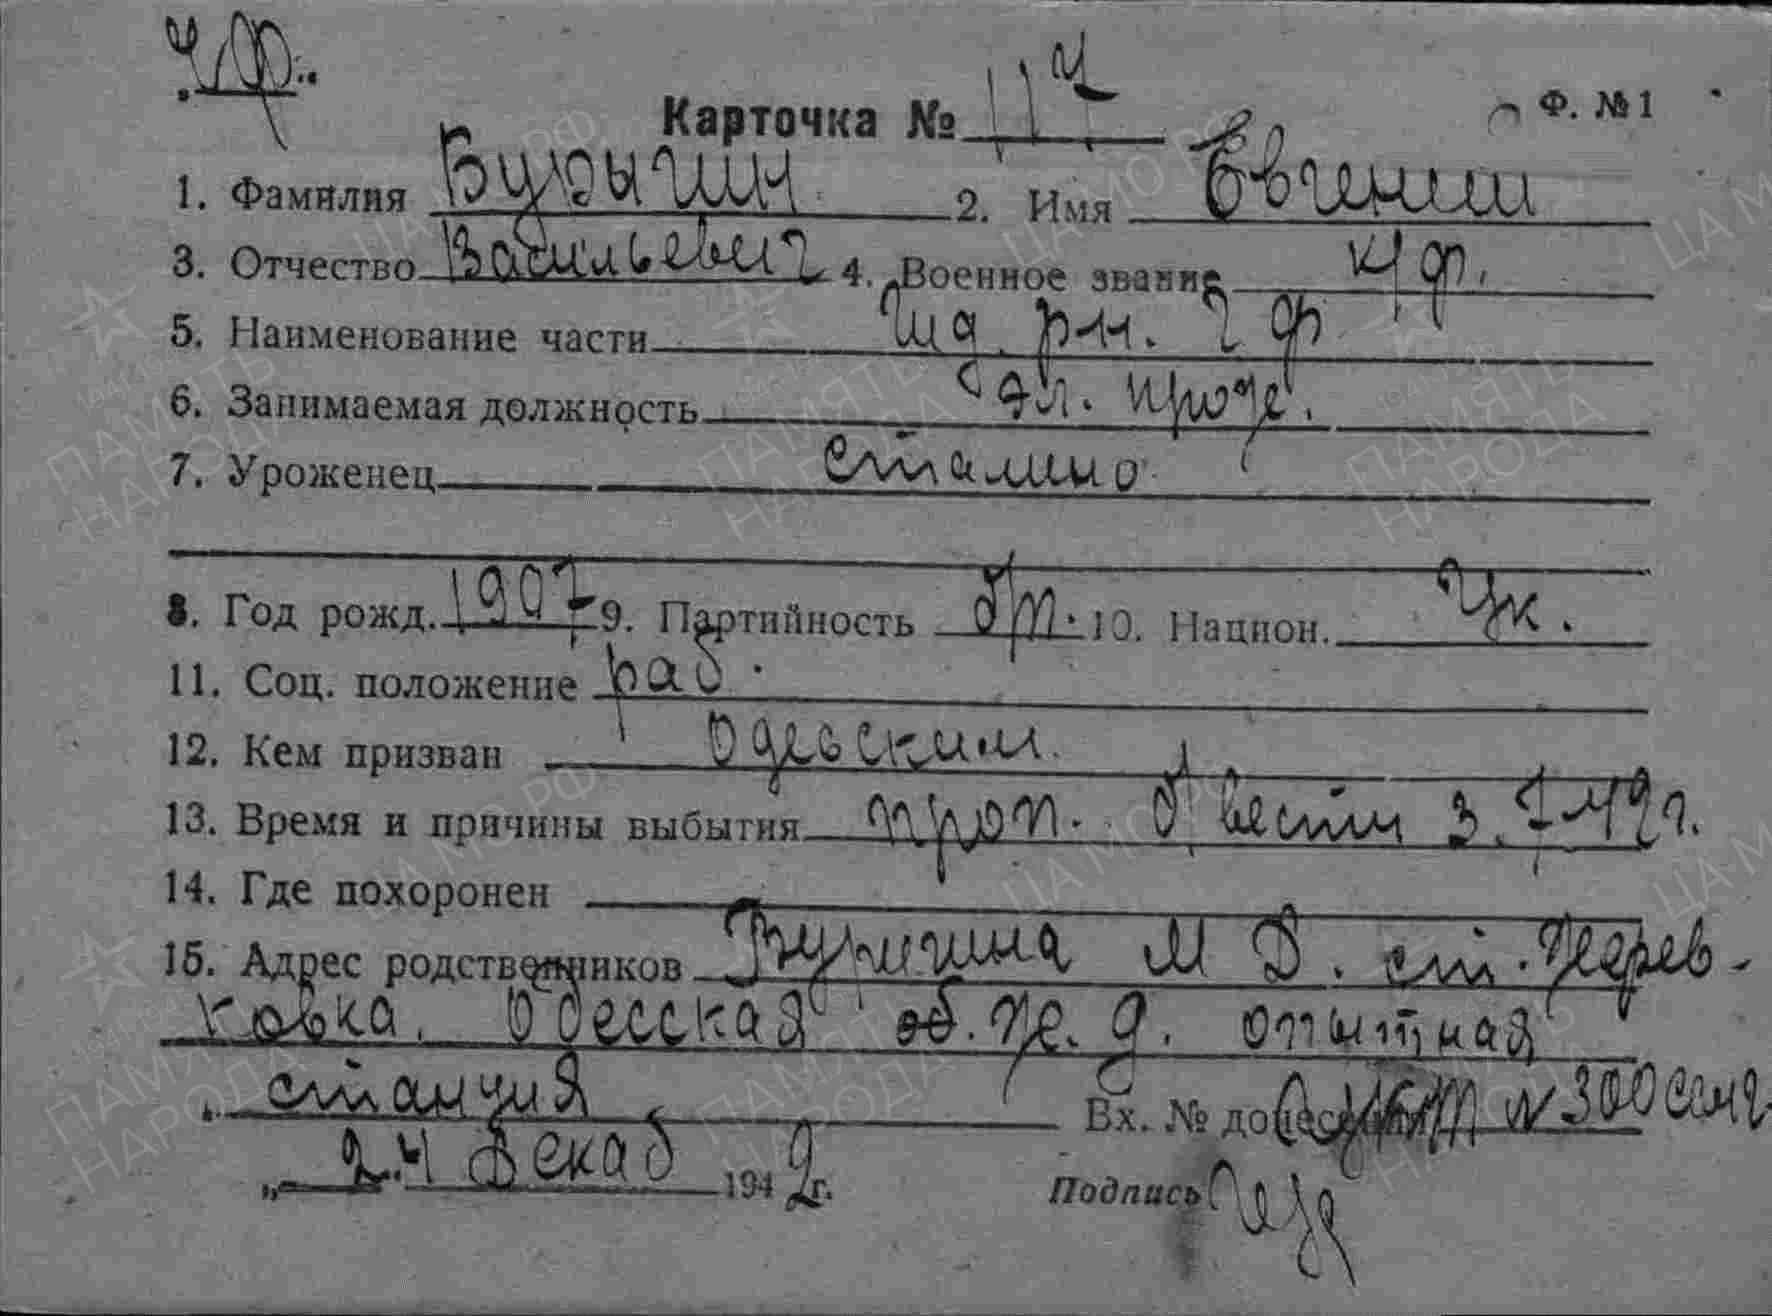 Карточка № Ф. № 1
1. Фамилия Бурыгин 2. Имя Евгений
3. Отчество Васильевич 4. Военное звание кр ф.
5. Наименование части Чф
6. Занимаемая должность эл.
7. Уроженец Сталино
8. Год рожд. 1907 9. Партийность б/п. 10. Национ. Ук.
11. Соц. положение раб.
12. Кем призван Одесским
13. Время и причины выбытия проп. б вести 3. 7-42 г.
14. Где похоронен
15. Адрес родственников Бурыгина М ст.
Одесская об. ж. д. опытная
станция Вх. № № 300
„ 24 декаб 1942г. Подпись